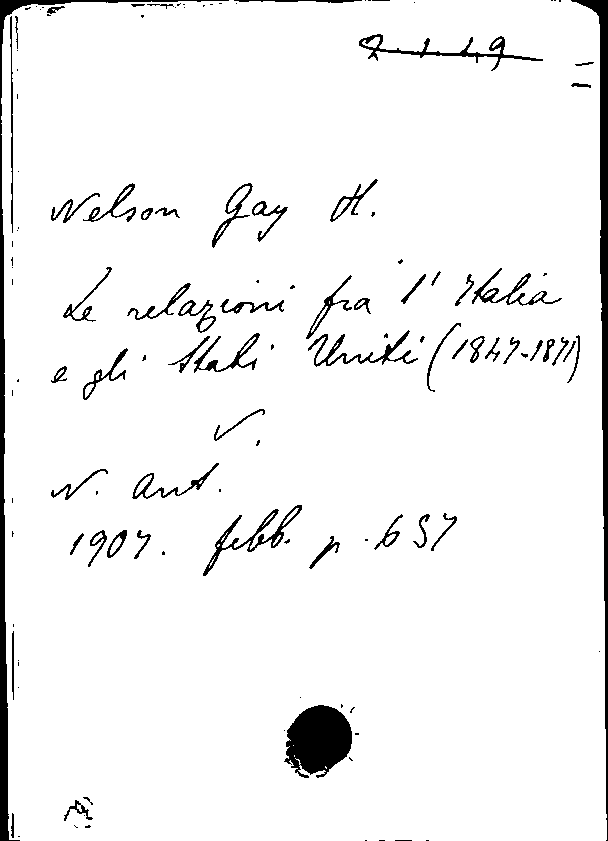 2.1.49
Nelson Gay H.
Le relazioni fra l'Italia
e gli Stati Uniti (1847-1871)
V.
N. Ant.
1907. febb. p. 657